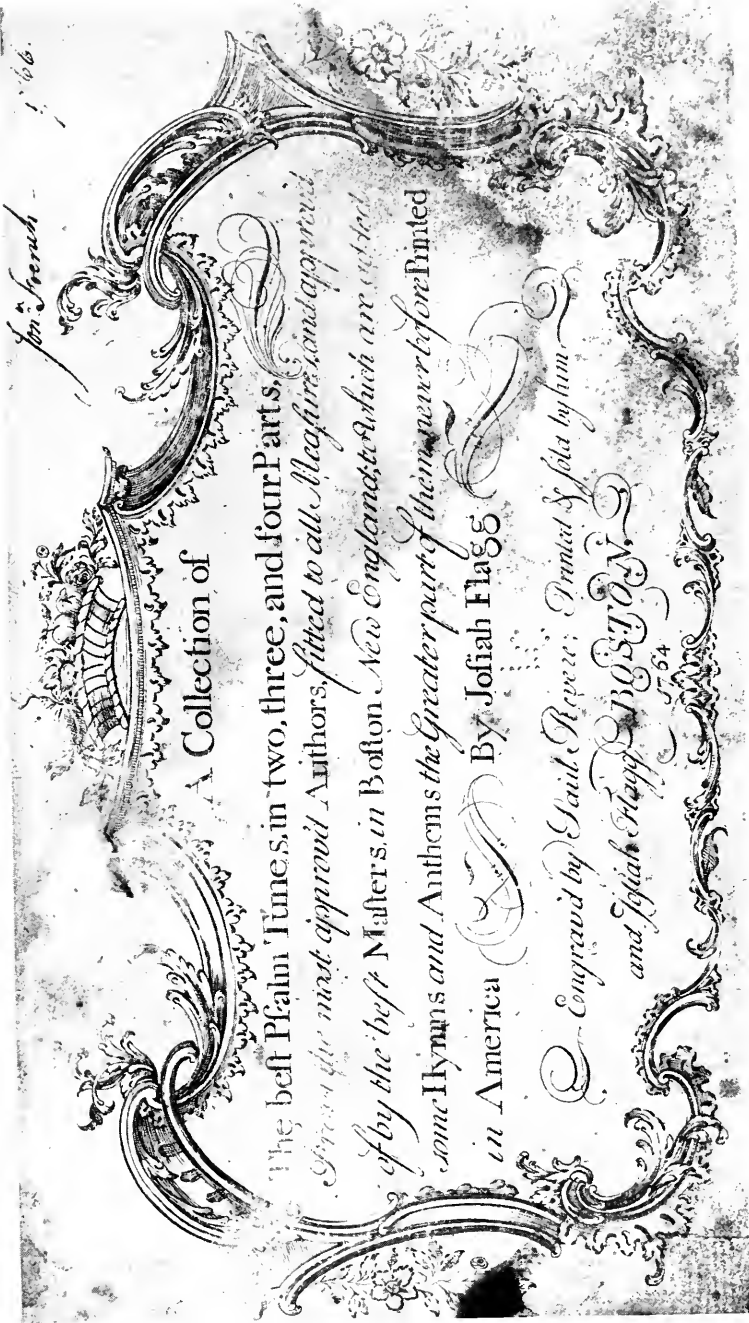 Jonª French
1766.
A Collection of
The best Psalm Tunes, in two, three, and four Parts,
From the most approv'd Authors, fitted to all Measures, and approv'd
of by the best Masters in Boston New England; to which are added
some Hymns and Anthems the Greater part of them never before Printed
in America By Josiah Flagg
Engrav'd by Paul Revere: Printed & Sold by him
and Josiah Flagg BOSTON,
1764